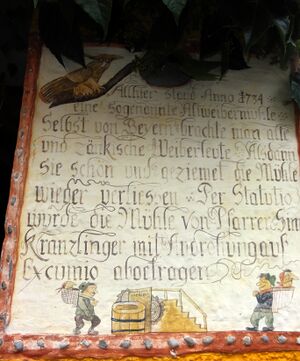 Allhier stand Anno 1784
eine sogenannte Altweibermühle
Selbst von Bayern brachte man alte
und zänkische Weiberleute. Alsdann
Sie schön und geziemet die Mühle
wieder verliessen. Der
wurde die Mühle von Pfarrer
Kranzlinger mit Androhung auf
abgetragen